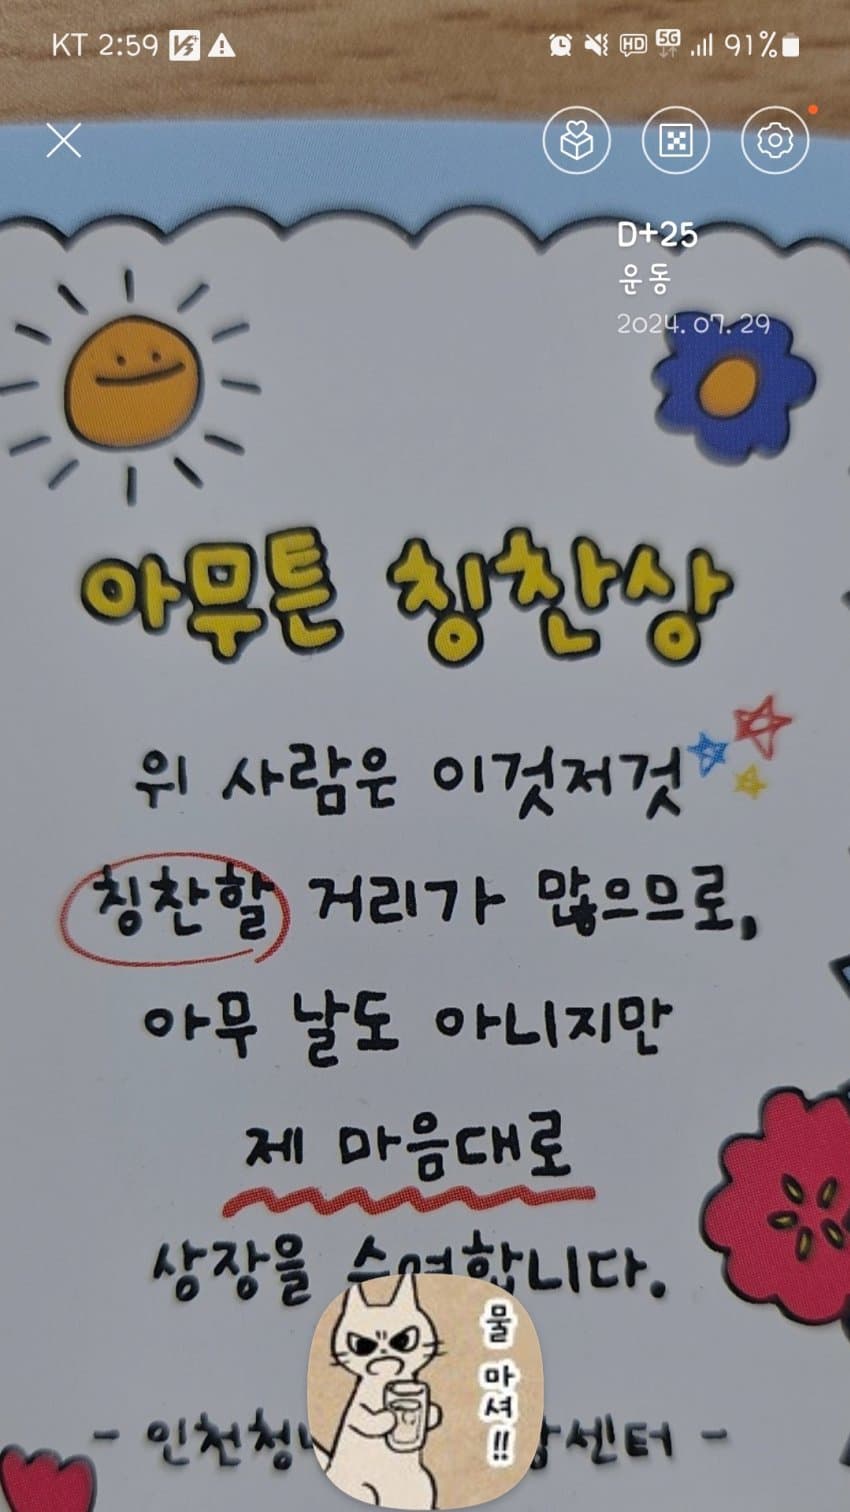 KT 2:59
HD 5G 91%
D+25
운동
2024. 07. 29
아무튼 칭찬상
위 사람은 이것저것
칭찬할 거리가 많으므로,
아무 날도 아니지만
제 마음대로
상장을 수여합니다.
물
마
셔
!!